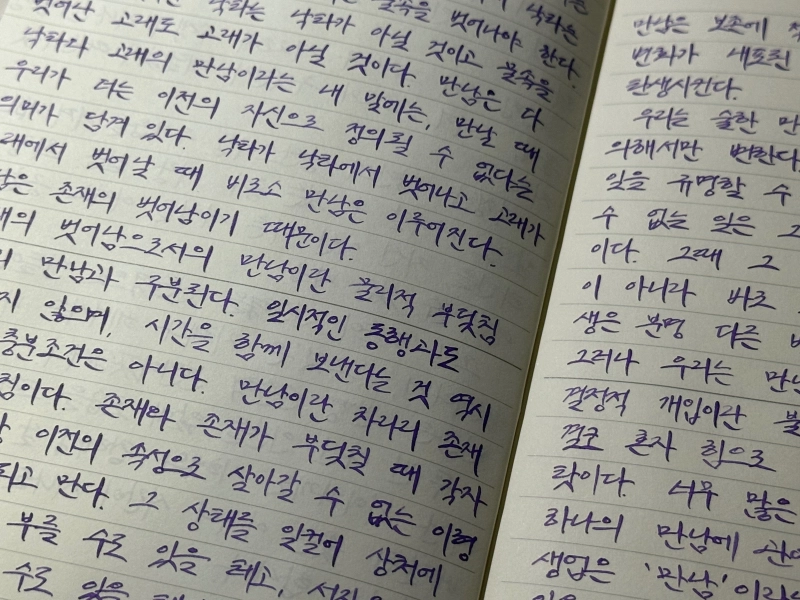 낙타는
벗어난 고래도 낙타는 낙타가 물속을 벗어나야 한다.
낙타와 고래가 아닐 것이고 물속을
우리가 고래의 만남이라는 아닐 것이다. 만남은 다
의미가 더는 이전의 내 밑에는, 만날 때
래에서 담겨 있다. 자신으로 정의될 수 없다는
남은 벗어날 때 낙타가 낙타에서 벗어나고 고래가
존재의 벗어남이기 비로소 만남은 이루어진다.
벗어남으로서의 때문이다.
의 만남과 만남이란 물리적 부딪침
지 않으며, 구분된다. 일시적인 동행과도
충분조건은 시간을 함께 보낸다는 것 역시
침이다. 아니다. 만남이란 차라리 존재
이전의 존재와 존재가 부딪칠 때 각자
되고 만다. 속성으로 살아갈 수 없는 이형
부를 수도 그 상태를 일컬어 상처에
수도 있을 테고,
있을
만남은 보존에
변화가 내포된
탄생시킨다.
우리는 숱한 만
위해서만 변한다.
있을 규명할 수
수 없는 일은 그
이다. 그때 그
이 아니라 비로
생은 분명 다른
그러나 우리는 만
결정적 개입이란 불
결코 혼자 힘으로
탓이다. 너무 많은
하나의 만남에 관여
생업은 '만남'이라